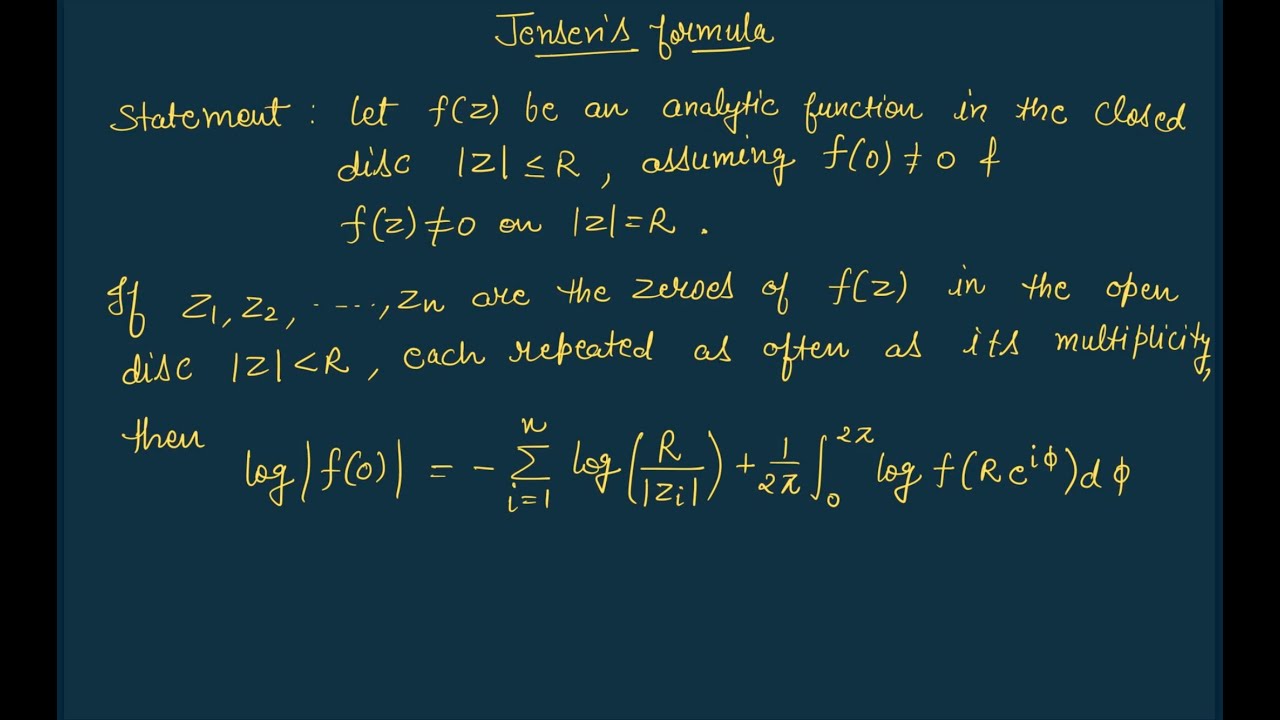 Jensen's formula
Statement : let f(z) be an analytic function in the closed
disc |z| ≤ R , assuming f(0) ≠ 0 &
f(z) ≠ 0 on |z| = R .
If z₁, z₂, ....., zₙ are the zeroes of f(z) in the open
disc |z| < R , each repeated as often as its multiplicity,
then log|f(0)| = - ∑_{i=1}^{n} log(R/|zᵢ|) + 1/2π ∫_0^{2π} log f(R e^{iϕ}) dϕ